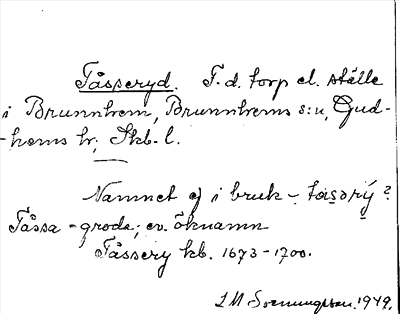 Tåsseryd. F.d. torp el. ställe
i Brunnhem, Brunnhems s:n, Gud-
-hems hr; Skb. l.
Namnet ej i bruk – tåsərý?
Tåssa = groda; ev. öknamn
Tåssery kb. 1673–1700.
I M Svenungsson. 1949.